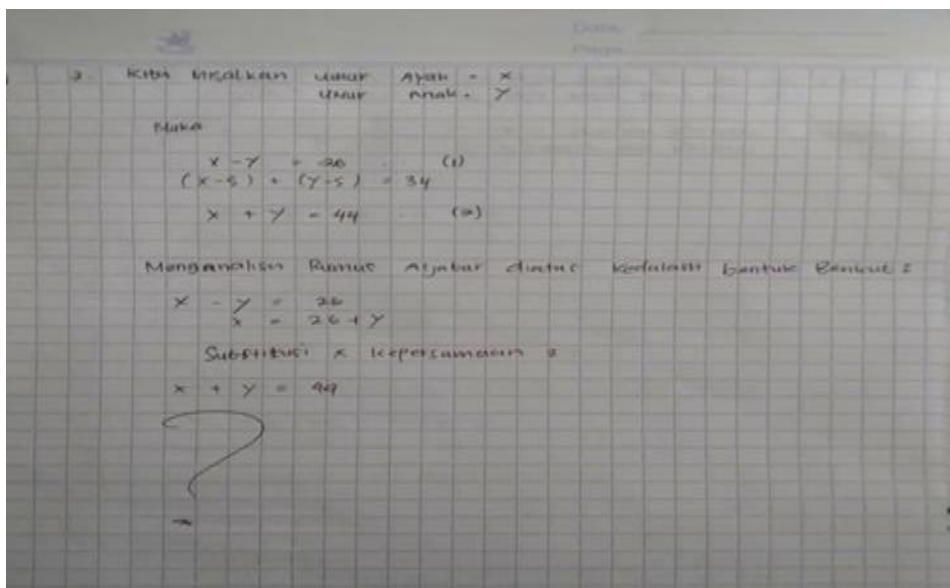 Date
Page
2. Kita Misalkan umur Ayah = x
umur Anak = y
Maka
x - y = 26 (1)
(x-5) + (y-5) = 34
x + y = 44 (2)
Menganalisa Rumus Aljabar diatas kedalam bentuk Berikut :
x - y = 26
x = 26 + y
Substitusi x kepersamaan 2
x + y = 44
?